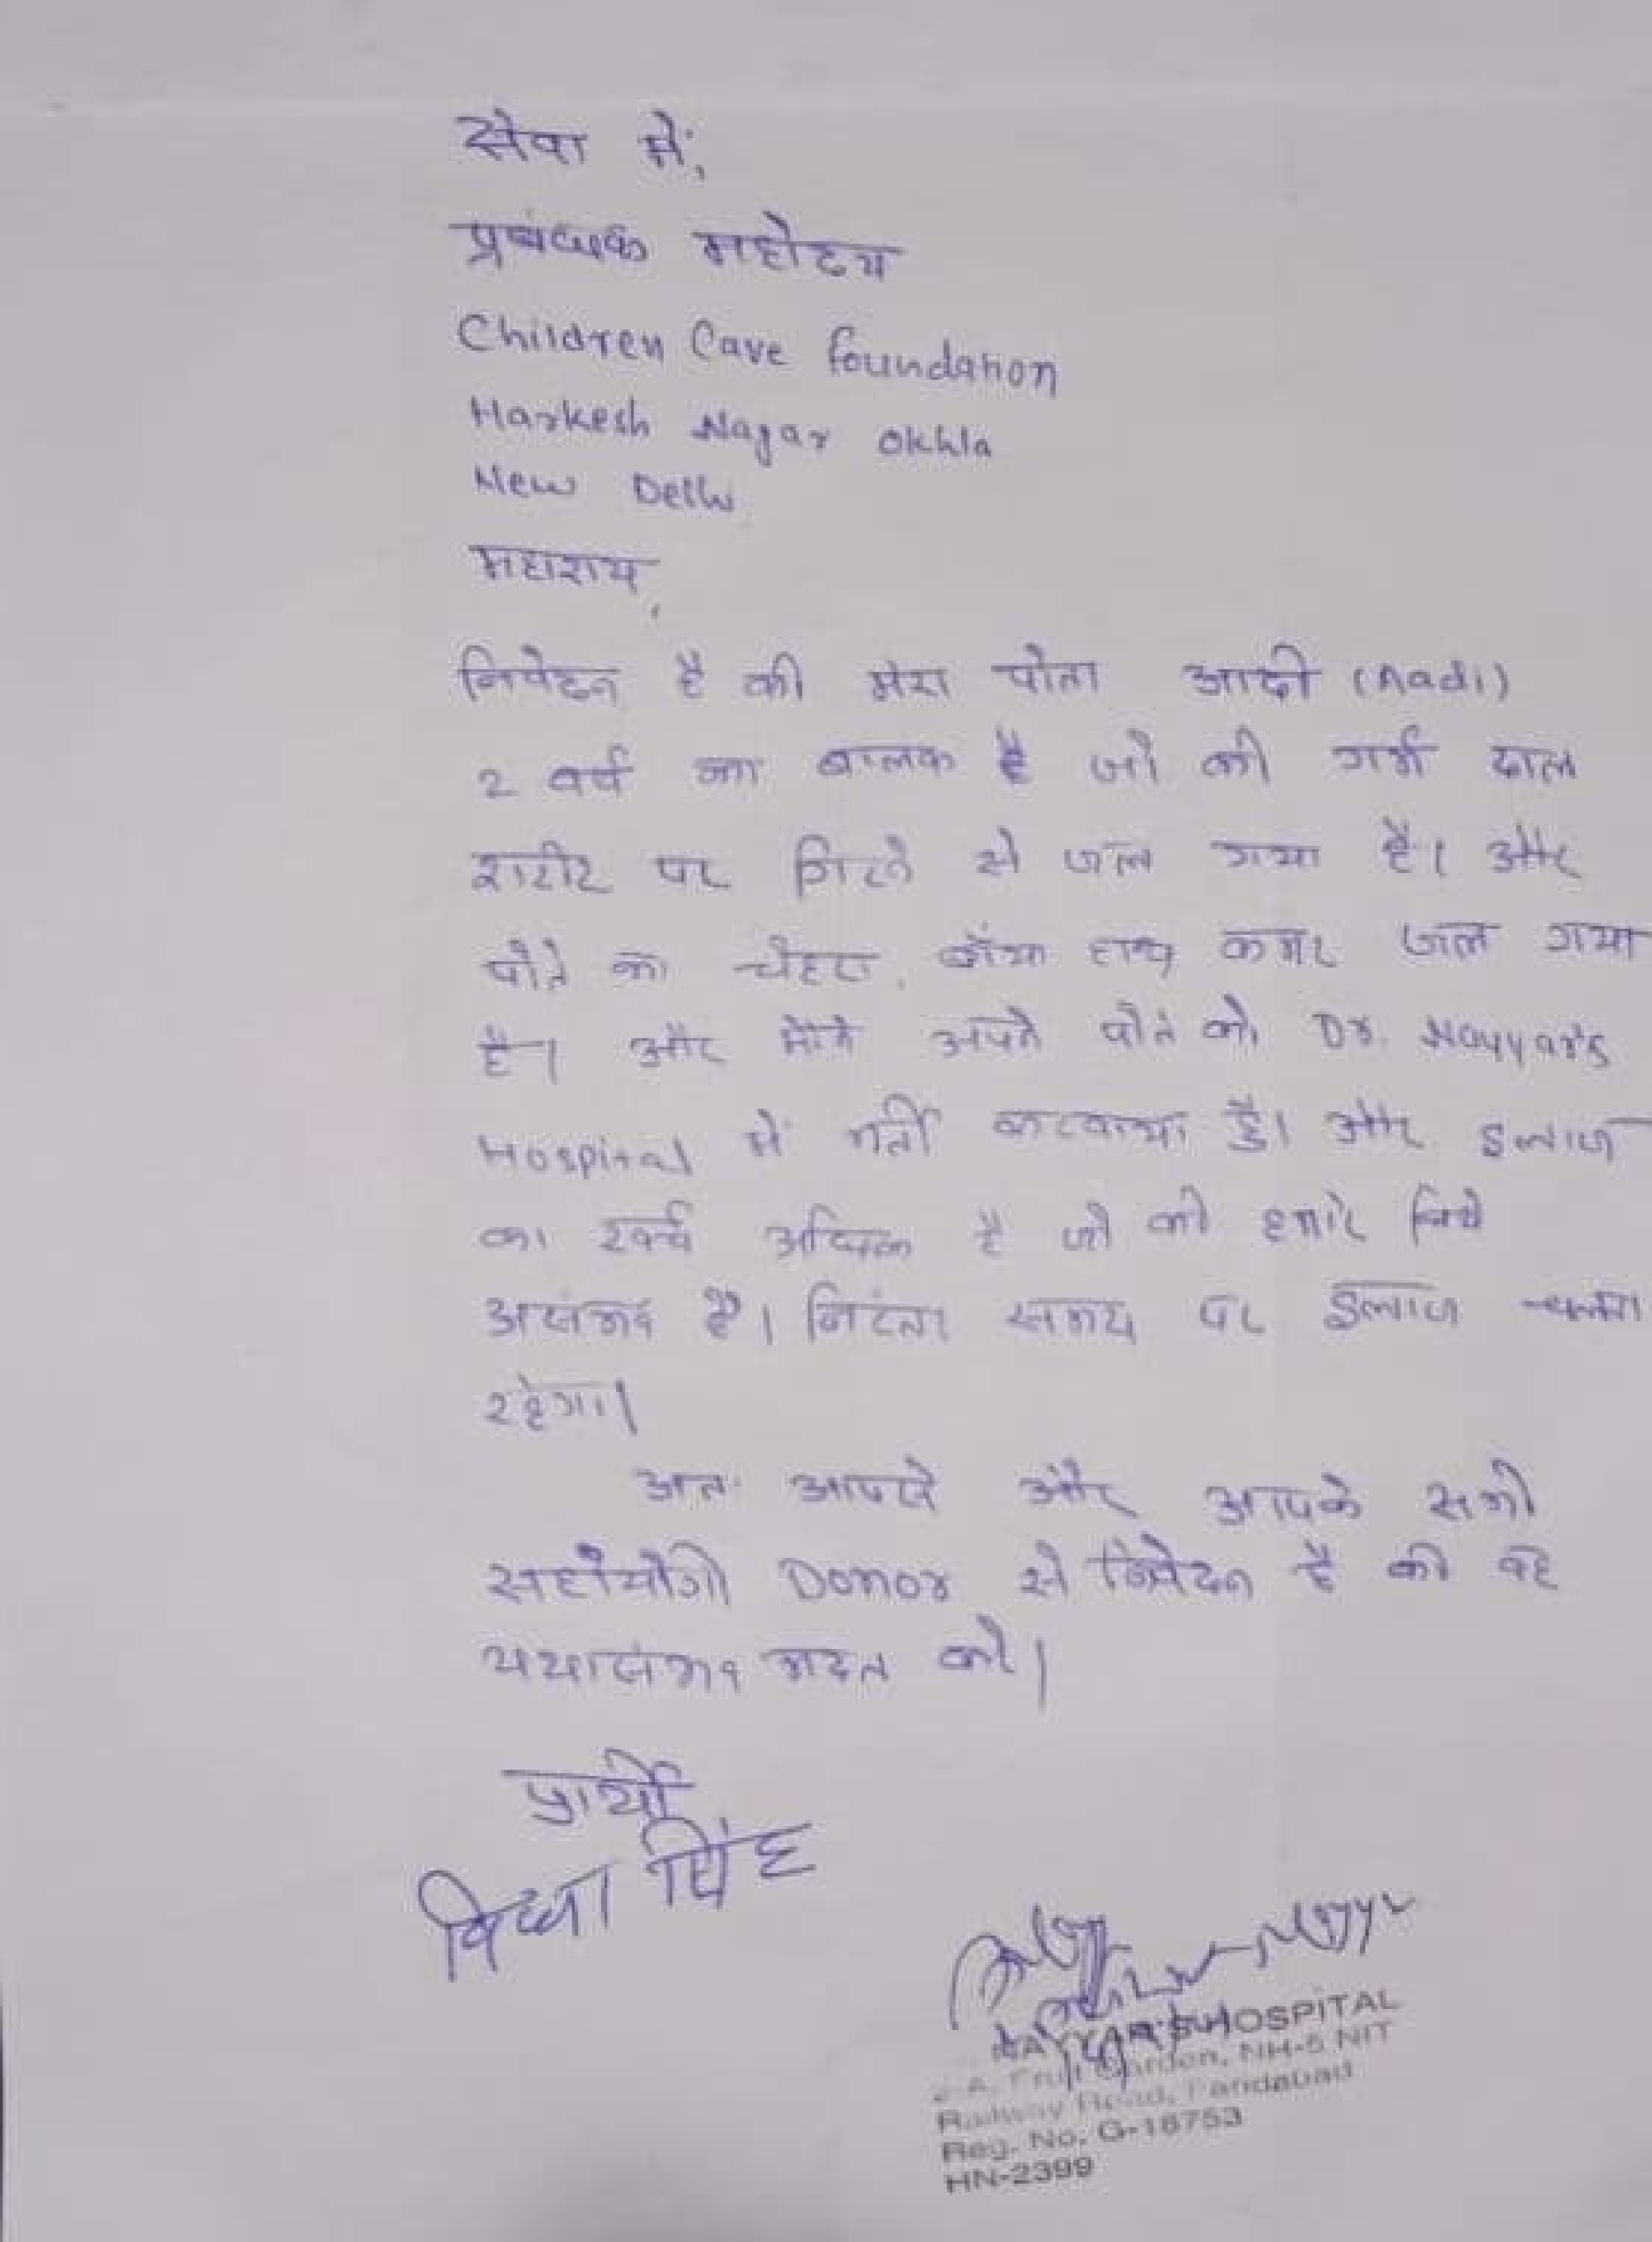 सेवा में,
प्रबंधक महोदय
Children Care foundation
Harkesh Nagar Okhla
New Delhi
महाशय,
निवेदन है की मेरा पोता आदी (Aadi)
2 वर्ष का बालक है जो की गर्म दाल
शरीर पर गिरने से जल गया है। और
पोते का चेहरा, बाँया हाथ कमर जल गया
है। और मैंने अपने पोते को Dr. Nayyar's
Hospital में भर्ती करवाया है। और इलाज
का खर्च अधिक है जो की हमारे लिये
असंभव है। निरंतर समय पर इलाज चलता
रहेगा।
अतः आपसे और आपके सभी
सहयोगी Donor से निवेदन है की वह
यथासंभव मदत करे।
प्रार्थी
विधा सिंह
NAYYAR'S HOSPITAL
A, Fruit Garden, NH-5 NIT
Railway Road, Faridabad
Reg. No. G-18753
HN-2399